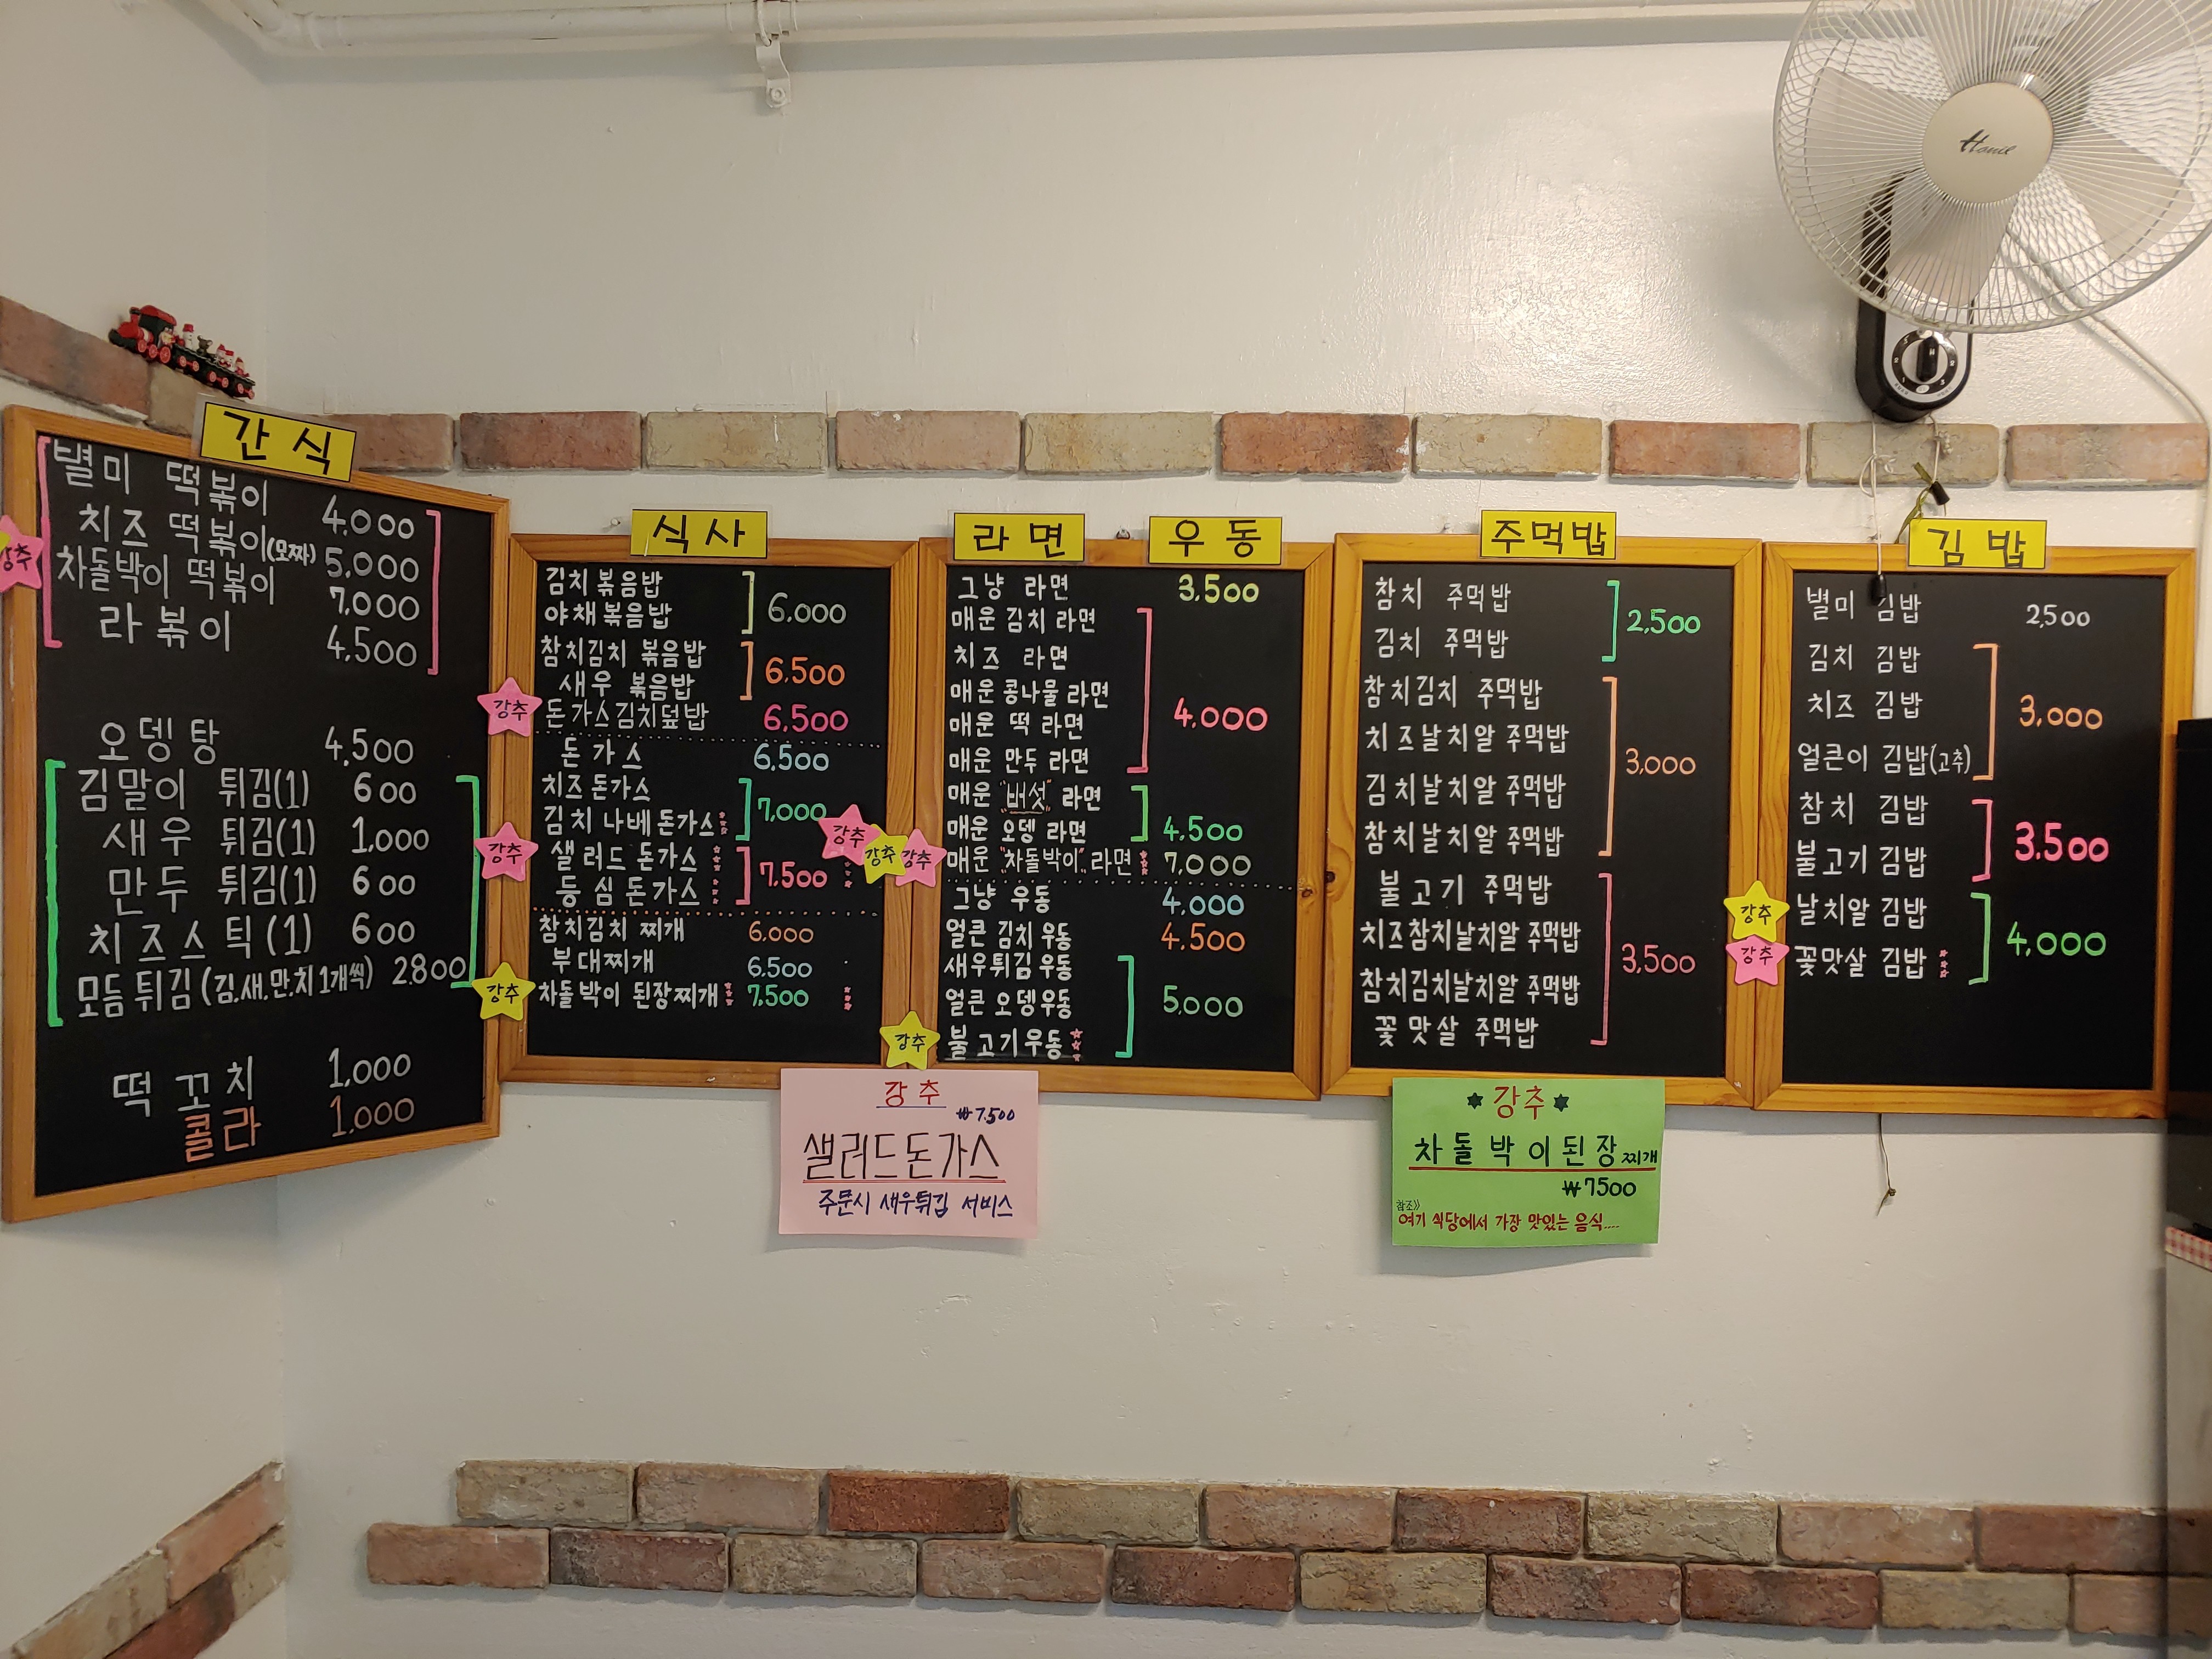 간식
별미 떡볶이 4,000
치즈 떡볶이(모짜) 5,000
차돌박이 떡볶이 7,000
라볶이 4,500
강추
오뎅탕 4,500
김말이 튀김(1) 600
새우 튀김(1) 1,000
만두 튀김(1) 600
치즈스틱(1) 600
모듬튀김(김.새.만.치1개씩) 2.800
떡꼬치 1,000
콜라 1,000
식사
김치볶음밥
야채볶음밥
6,000
참치김치 볶음밥
새우 볶음밥
6,500
강추
돈가스김치덮밥 6,500
돈가스 6,500
치즈돈가스
김치나베돈가스
7,000
강추
샐러드돈가스
등심돈가스
7,500
참치김치 찌개 6,000
부대찌개 6,500
강추
차돌박이 된장찌개 7,500
라면
우동
그냥 라면 3,500
매운 김치 라면
치즈 라면
매운 콩나물 라면
매운 떡 라면
매운 만두 라면
4,000
매운 "버섯" 라면
매운 오뎅 라면
4,500
강추
강추
강추
매운 "차돌박이" 라면 7,000
그냥 우동 4,000
얼큰 김치우동 4,500
새우튀김우동
얼큰 오뎅우동
강추
불고기우동
5,000
주먹밥
참치 주먹밥
김치 주먹밥
2,500
참치김치 주먹밥
치즈날치알 주먹밥
김치날치알 주먹밥
참치날치알 주먹밥
3,000
불고기 주먹밥
치즈참치날치알 주먹밥
참치김치날치알 주먹밥
꽃맛살 주먹밥
3,500
김밥
별미 김밥 2,500
김치 김밥
치즈 김밥
얼큰이 김밥(고추)
3,000
참치 김밥
불고기 김밥
3.500
강추
날치알 김밥
강추
꽃맛살 김밥
4,000
강추
₩7.500
샐러드돈가스
주문시 새우튀김 서비스
강추
차돌박이된장찌개
₩7500
참조》
여기 식당에서 가장 맛있는 음식....
Hanil